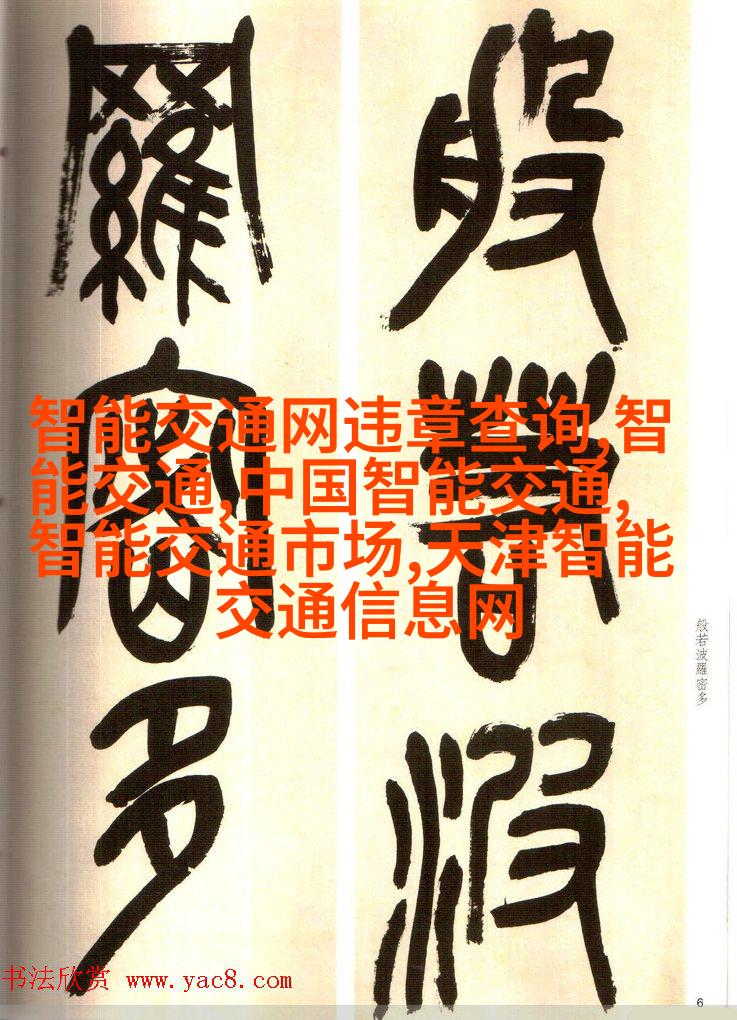 般若波
羅密多
智能交通网违章查询,智
能交通,中国智能交通,
智能交通市场,天津智能
交通信息网
般若波羅密多
书法欣赏 www.yac8.com
6